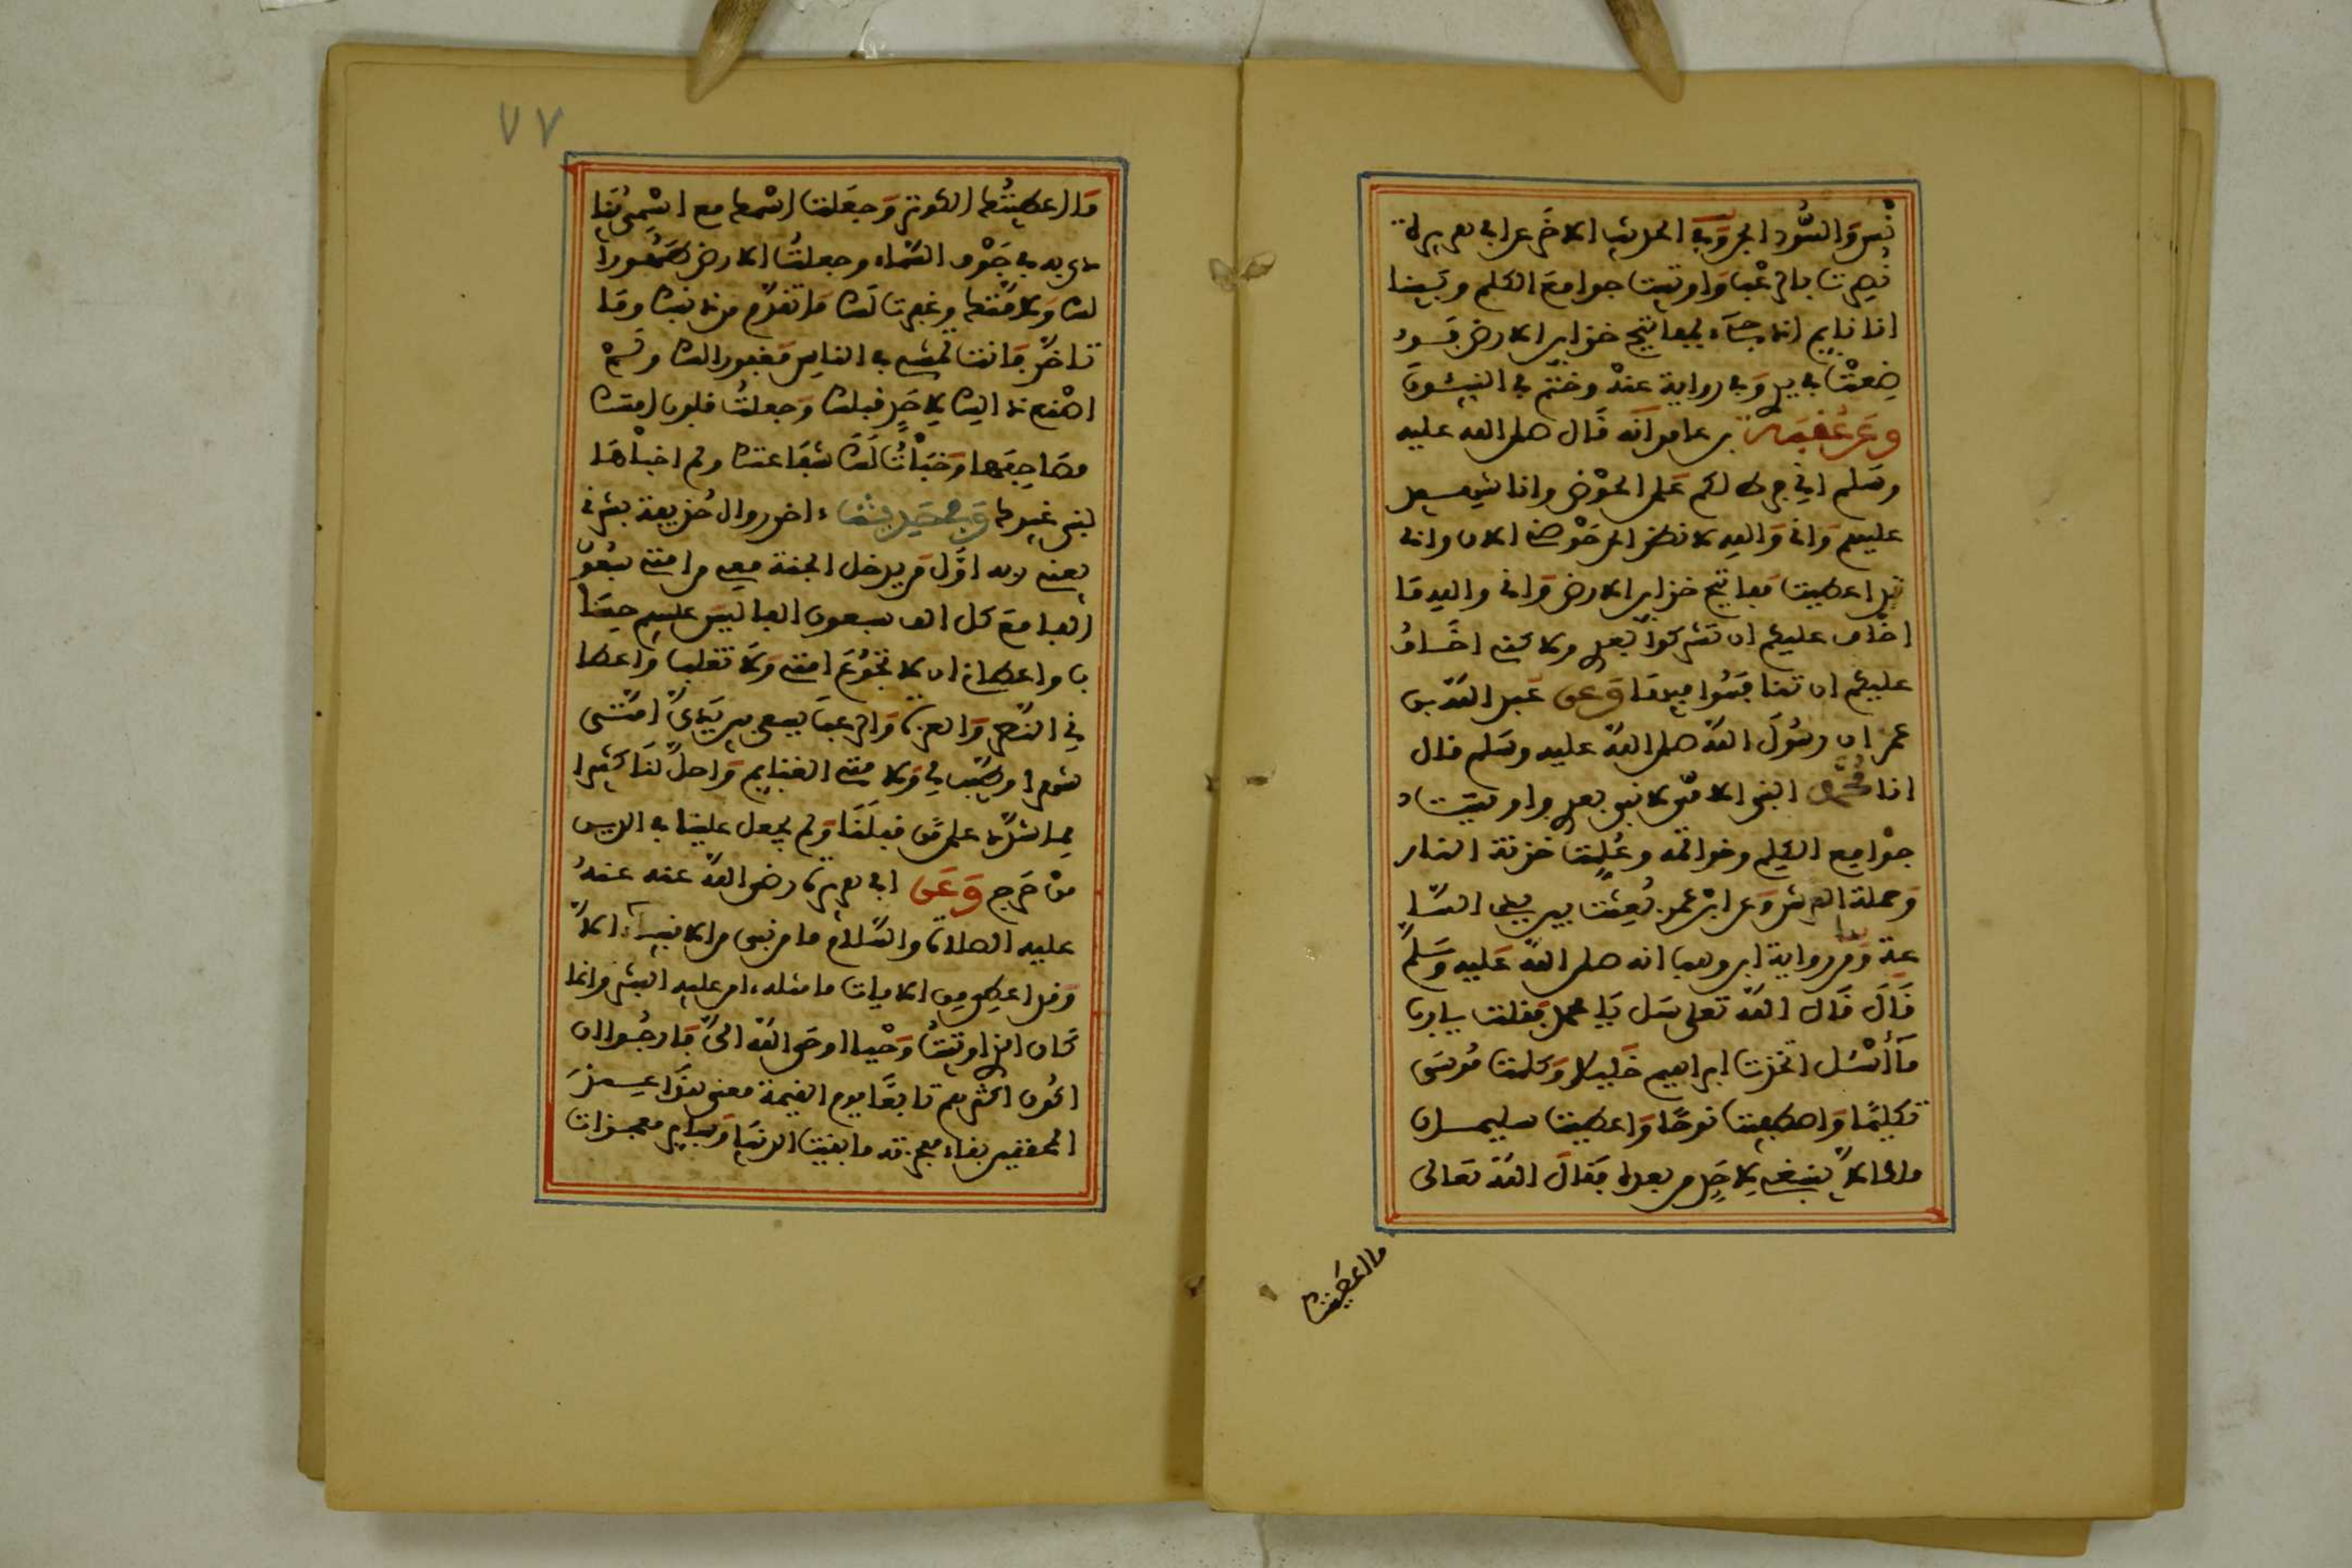 نس والسود الجن وفي الحديث الاخر عن ابي هريرة
نصرت بالرعب واوتيت جوامع الكلم وبينا
انا نايم اذ جاء بمفاتيح خزاين الارض فو
ضعت في يدي وفي رواية عنه وختم بي النبيئون
وعن عقبة بن عامر انه قال صلى الله عليه
وسلم اني فرط لكم على الحوض وانا شهيد
عليكم واني والله لانظر الى حوضي الان واني
قد اعطيت مفاتيح خزاين الارض واني والله ما
اخاف عليكم ان تشركوا بعدي ولاكني اخاف
عليكم ان تنافسوا فيها وعن عبد الله بن
عمر ان رسول الله صلى الله عليه وسلم قال
انا محمد النبي الامي لا نبي بعدي واوتيت
جوامع الكلم وخواتمه وعلمت خزنة النار
وحملة العرش وعن ابن عمر بعثت بين يدي السا
عة ومن رواية ابن وهب انه صلى الله عليه وسلم
قال قال الله تعلى سل يا محمد فقلت يا رب
ما أسئل اتخذت ابراهيم خليلا وكلمت موسى
تكليما واصطفيت نوحا واعطيت سليمان
ملكا لا ينبغي لاحد من بعده فقال الله تعالى
ما اعطيتك
٧٧
ما اعطيتك الكوثر وجعلت اسمك مع اسمي ينا
دى به في جوف السماء وجعلت الارض طهورا
لك ولامتك وغفرت لك ما تقدم من ذنبك وما
تاخر فانت تمشي في الناس مغفورا لك ولم
اصنع ذالك لاحد قبلك وجعلت قلوب امتك
مصاحفها وخبأت لك شفاعتك ولم اخبأها
لنبي غيرك وفي حديث اخر رواه حذيفة بشرني
يعني ربه اول من يدخل الجنة معي من امتي سبعون
الفا مع كل الف سبعون الفا ليس عليهم حسا
ب واعطاني ان لا تجوع امتي ولا تغلب واعطا
ني النصر والعزة والرعب يسعى بين يدي امتي
شهرا وطيب لي ولامتي الغنايم واحل لنا كثيرا
مما شدد على من قبلنا ولم يجعل علينا في الدين
من حرج وعن ابي هريرة رضي الله عنه عنه
عليه الصلاة والسلام ما من نبي من الانبياء الا
وقد اعطي من الايات ما مثله امن عليه البشر وانما
كان الذي اوتيت وحيا اوحى الله الي فارجوا ان
اكون اكثرهم تابعا يوم القيمة معنى هذا عند
المحققين بقاء معجزته ما بقيت الدنيا وساير معجزات